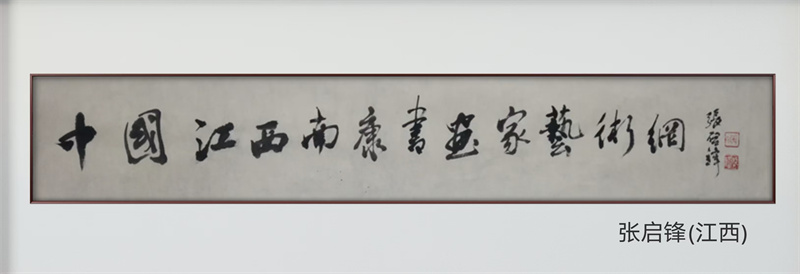 中國江西南康書畫家藝術網
張啓鋒
张启锋(江西)